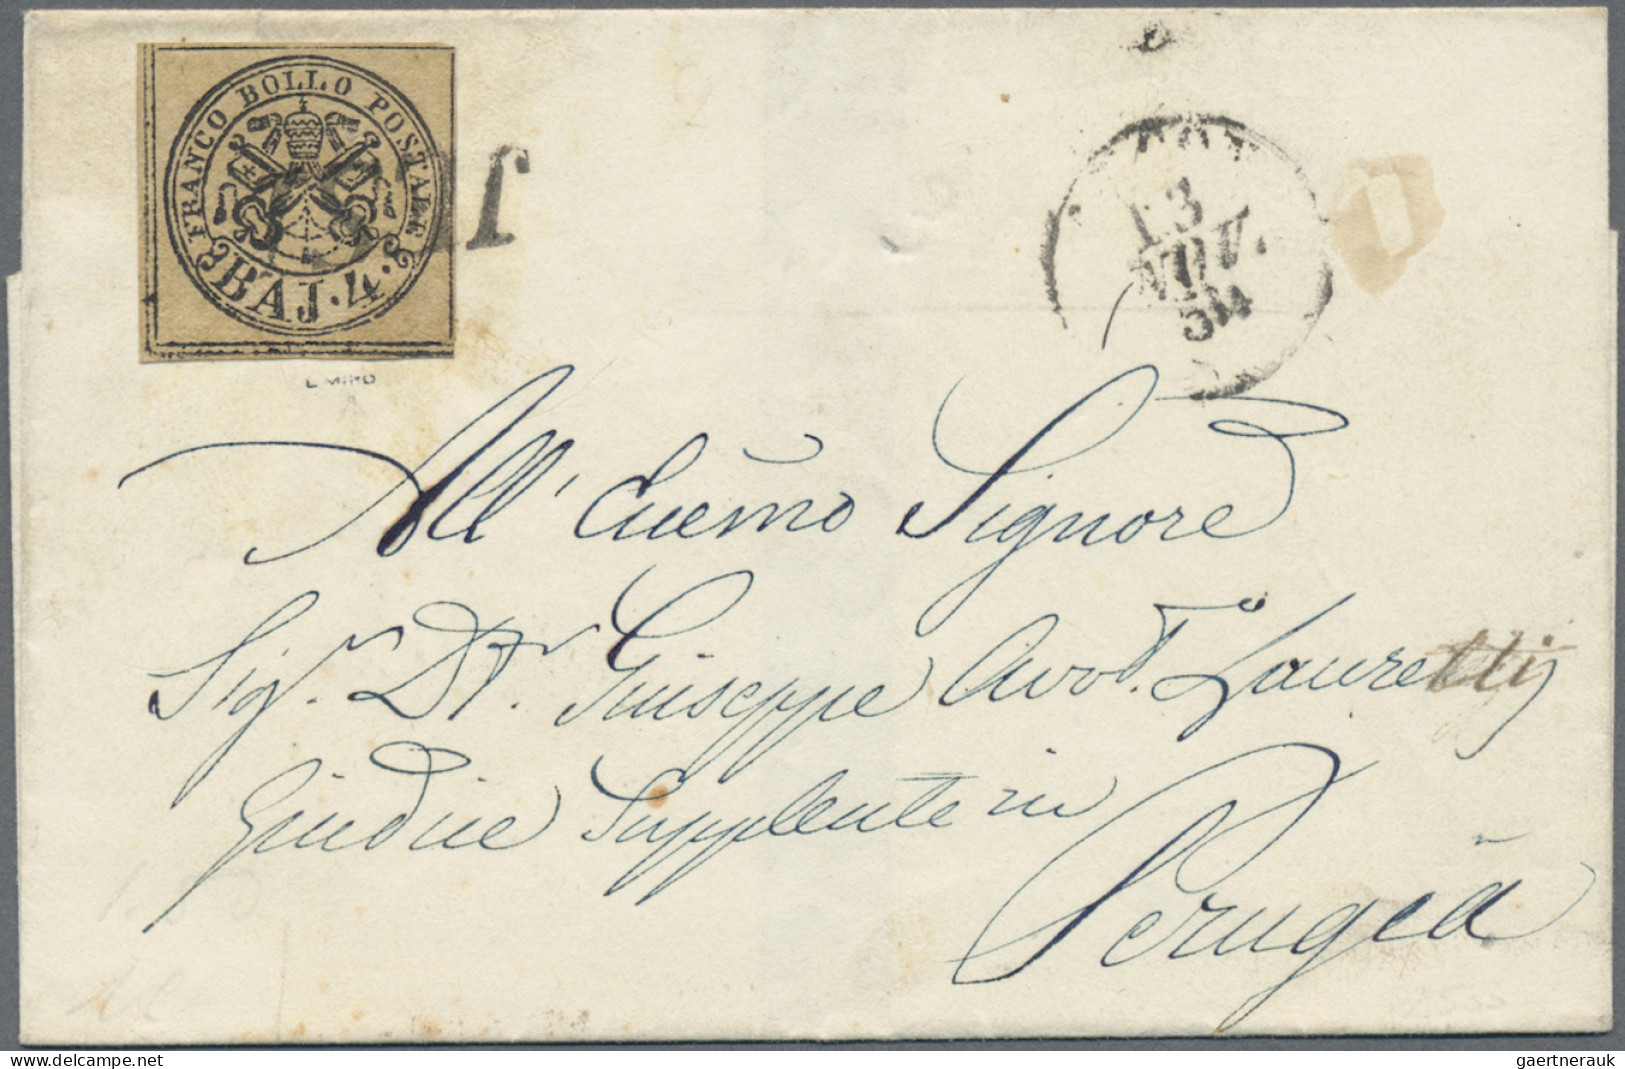 FRANCO BOLLO POSTALE
BAJ. 4.
13
NOV.
54
All' Ecc̃mo Signore
Sig.r Dr. Giuseppe Avvt. Lauretti
Giudice Supplente in
Perugia
gaertnerauk @ www.delcampe.net